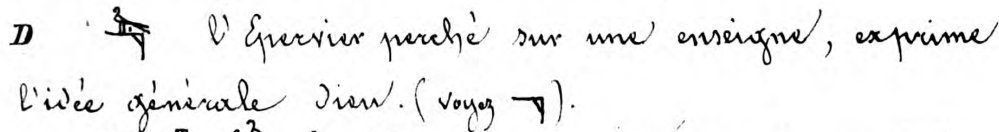 D 𓅆 l'Epervier perché sur une enseigne, exprime
l'idée générale Dieu. (voyez 𓊹).